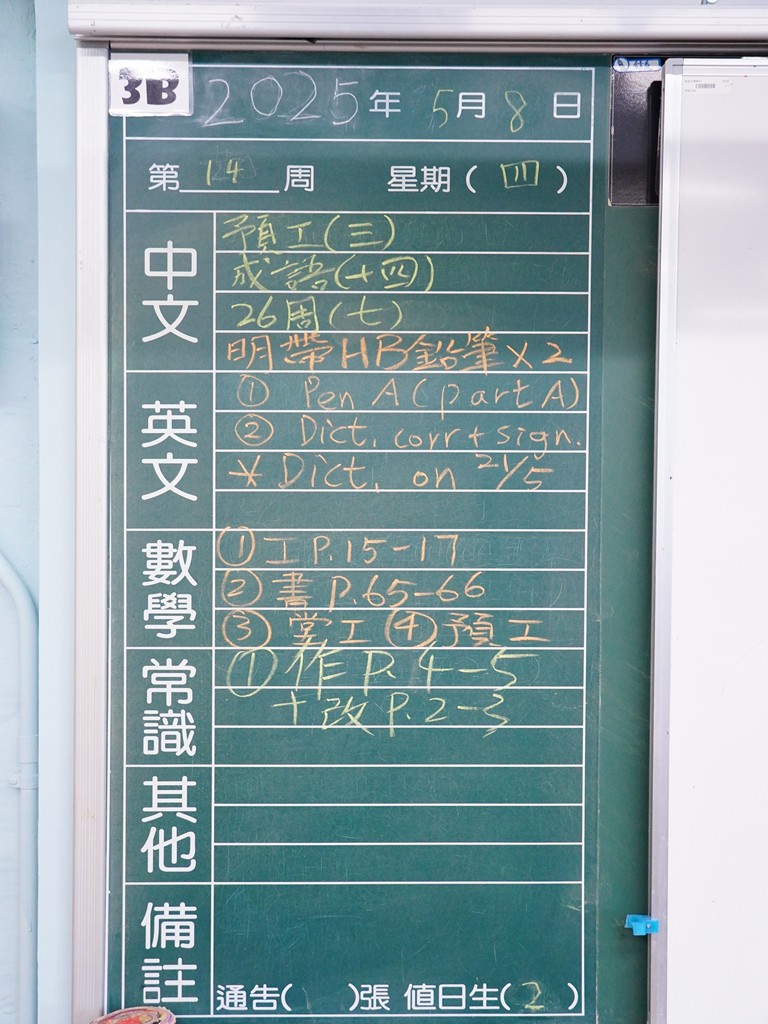 3B
2025年5月8日
第14周 星期(四)
中文
預工(三)
成語(十四)
26周(七)
明帶HB鉛筆x2
英文
① Pen A (part A)
② Dict. corr + sign.
* Dict. on 21/5
數學
① 工 P.15-17
② 書 P.65-66
③ 堂工 ④ 預工
常識
① 作 P. 4-5
+ 改 P. 2-3
其他
備註
通告( )張 值日生(2)